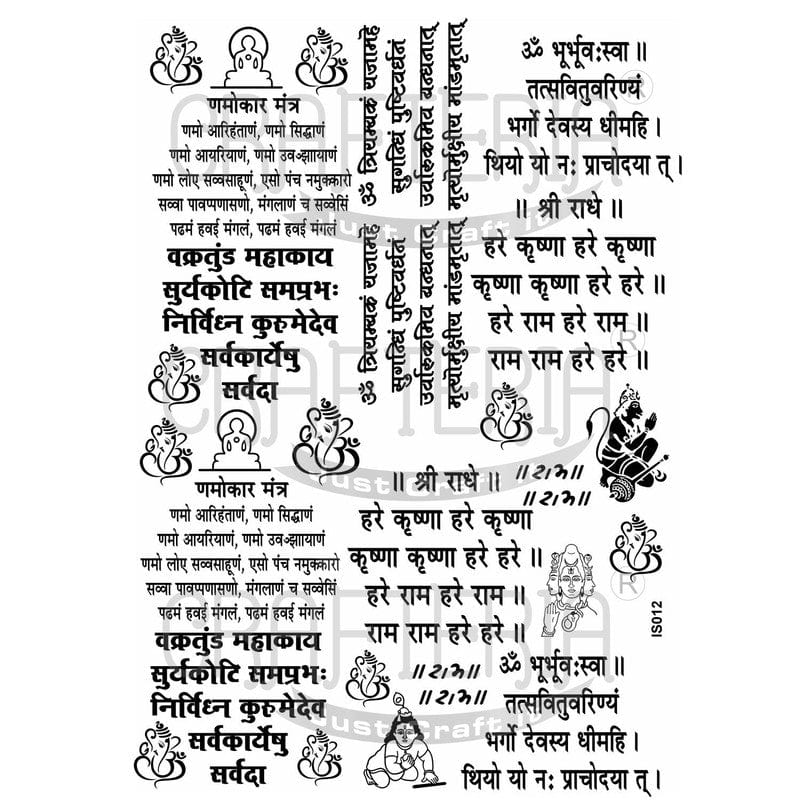 णमोकार मंत्र
णमो आरिहंताणं, णमो सिद्धाणं
णमो आयरियाणं, णमो उवज्झायाणं
णमो लोए सव्वसाहूणं, एसो पंच नमुक्कारो
सव्वा पावप्पणासणो, मंगलाणं च सव्वेसिं
पढमं हवई मंगलं, पढमं हवई मंगलं
वक्रतुंड महाकाय
सुर्यकोटि समप्रभः
निर्विध्न कुरुमेदेव
सर्वकार्येषु
सर्वदा
ॐ त्रियम्यकं यजामहे
सुगन्धिं पुष्टिवर्धनं
उर्वारुकमिव बन्धनात्
मृत्योर्मुक्षीय मांडमृतात्
ॐ त्रियम्यकं यजामहे
सुगन्धिं पुष्टिवर्धनं
उर्वारुकमिव बन्धनात्
मृत्योर्मुक्षीय मांडमृतात्
ॐ भूर्भूवःस्वा ॥
तत्सवितुवरिण्यं
भर्गो देवस्य धीमहि ।
थियो यो नः प्राचोदया त् ।
॥ श्री राधे ॥
हरे कृष्णा हरे कृष्णा
कृष्णा कृष्णा हरे हरे ॥
हरे राम हरे राम ॥
राम राम हरे हरे ॥
णमोकार मंत्र
णमो आरिहंताणं, णमो सिद्धाणं
णमो आयरियाणं, णमो उवज्झायाणं
णमो लोए सव्वसाहूणं, एसो पंच नमुक्कारो
सव्वा पावप्पणासणो, मंगलाणं च सव्वेसिं
पढमं हवई मंगलं, पढमं हवई मंगलं
वक्रतुंड महाकाय
सुर्यकोटि समप्रभः
निर्विध्न कुरुमेदेव
सर्वकार्येषु
सर्वदा
॥ श्री राधे ॥
हरे कृष्णा हरे कृष्णा
कृष्णा कृष्णा हरे हरे ॥
हरे राम हरे राम ॥
राम राम हरे हरे ॥
॥ राम ॥
॥ राम ॥
IS012
॥ राम ॥
॥ राम ॥
ॐ भूर्भूवःस्वा ॥
तत्सवितुवरिण्यं
भर्गो देवस्य धीमहि ।
थियो यो नः प्राचोदया त् ।
CRAFTERIA ®
Just Craft It
CRAFTERIA ®
Just Craft It
CRAFTERIA ®
Just Craft It